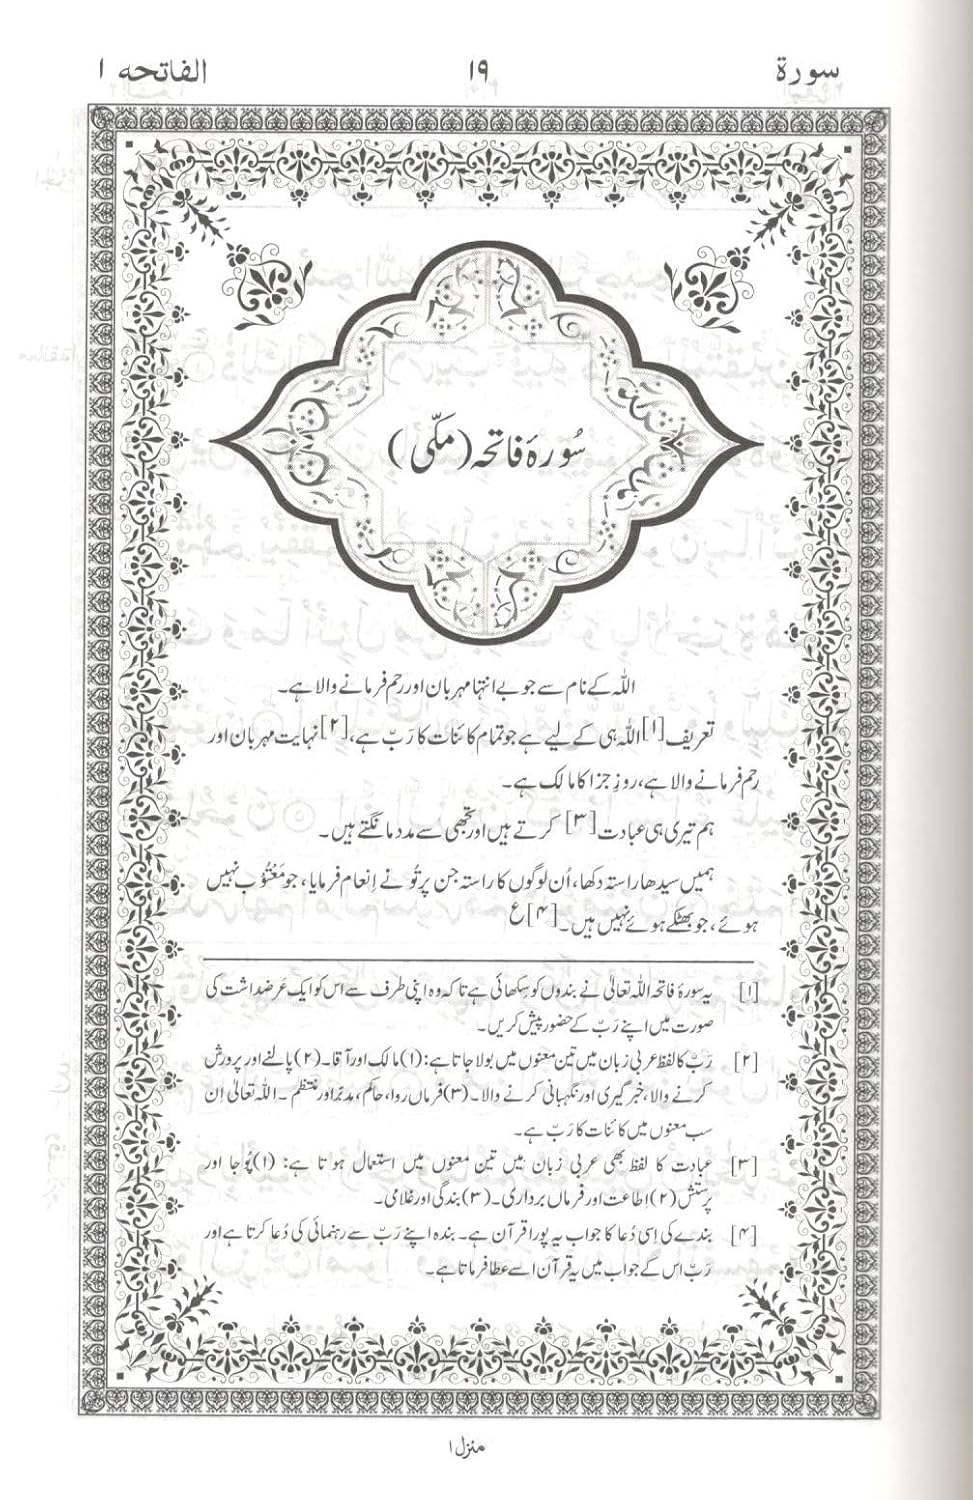 سورة ۱۹ الفاتحه ۱
سُورۂ فاتحہ (مکّی)
اللہ کے نام سے جو بے انتہا مہربان اور رحم فرمانے والا ہے۔
تعریف [۱] اللہ ہی کے لیے ہے جو تمام کائنات کا رَبّ ہے، [۲] نہایت مہربان اور
رحم فرمانے والا ہے، روزِ جزا کا مالک ہے۔
ہم تیری ہی عبادت [۳] کرتے ہیں اور تجھی سے مدد مانگتے ہیں۔
ہمیں سیدھا راستہ دکھا، اُن لوگوں کا راستہ جن پر تُو نے اِنعام فرمایا، جو مَغتُوب نہیں
ہوئے، جو بھٹکے ہوئے نہیں ہیں۔ [۴] ع
[۱] یہ سورۂ فاتحہ اللہ تعالیٰ نے بندوں کو سِکھائی ہے تاکہ وہ اپنی طرف سے اس کو ایک عرضداشت کی
صورت میں اپنے رَبّ کے حضور پیش کریں۔
[۲] رَبّ کا لفظ عربی زبان میں تین معنوں میں بولا جاتا ہے: (۱) مالک اور آقا۔ (۲) پالنے اور پرورش
کرنے والا، خبرگیری اور نگہبانی کرنے والا۔ (۳) فرماں روا، حاکم، مدبّر اور منتظم۔ اللہ تعالیٰ اِن
سب معنوں میں کائنات کا رَبّ ہے۔
[۳] عبادت کا لفظ بھی عربی زبان میں تین معنوں میں استعمال ہوتا ہے: (۱) پُوجا اور
پرستش (۲) اِطاعت اور فرماں برداری۔ (۳) بندگی اور غلامی۔
[۴] بندے کی اِسی دُعا کا جواب یہ پورا قرآن ہے۔ بندہ اپنے رَبّ سے رہنمائی کی دُعا کرتا ہے اور
رَبّ اس کے جواب میں یہ قرآن اسے عطا فرماتا ہے۔
منزل ۱